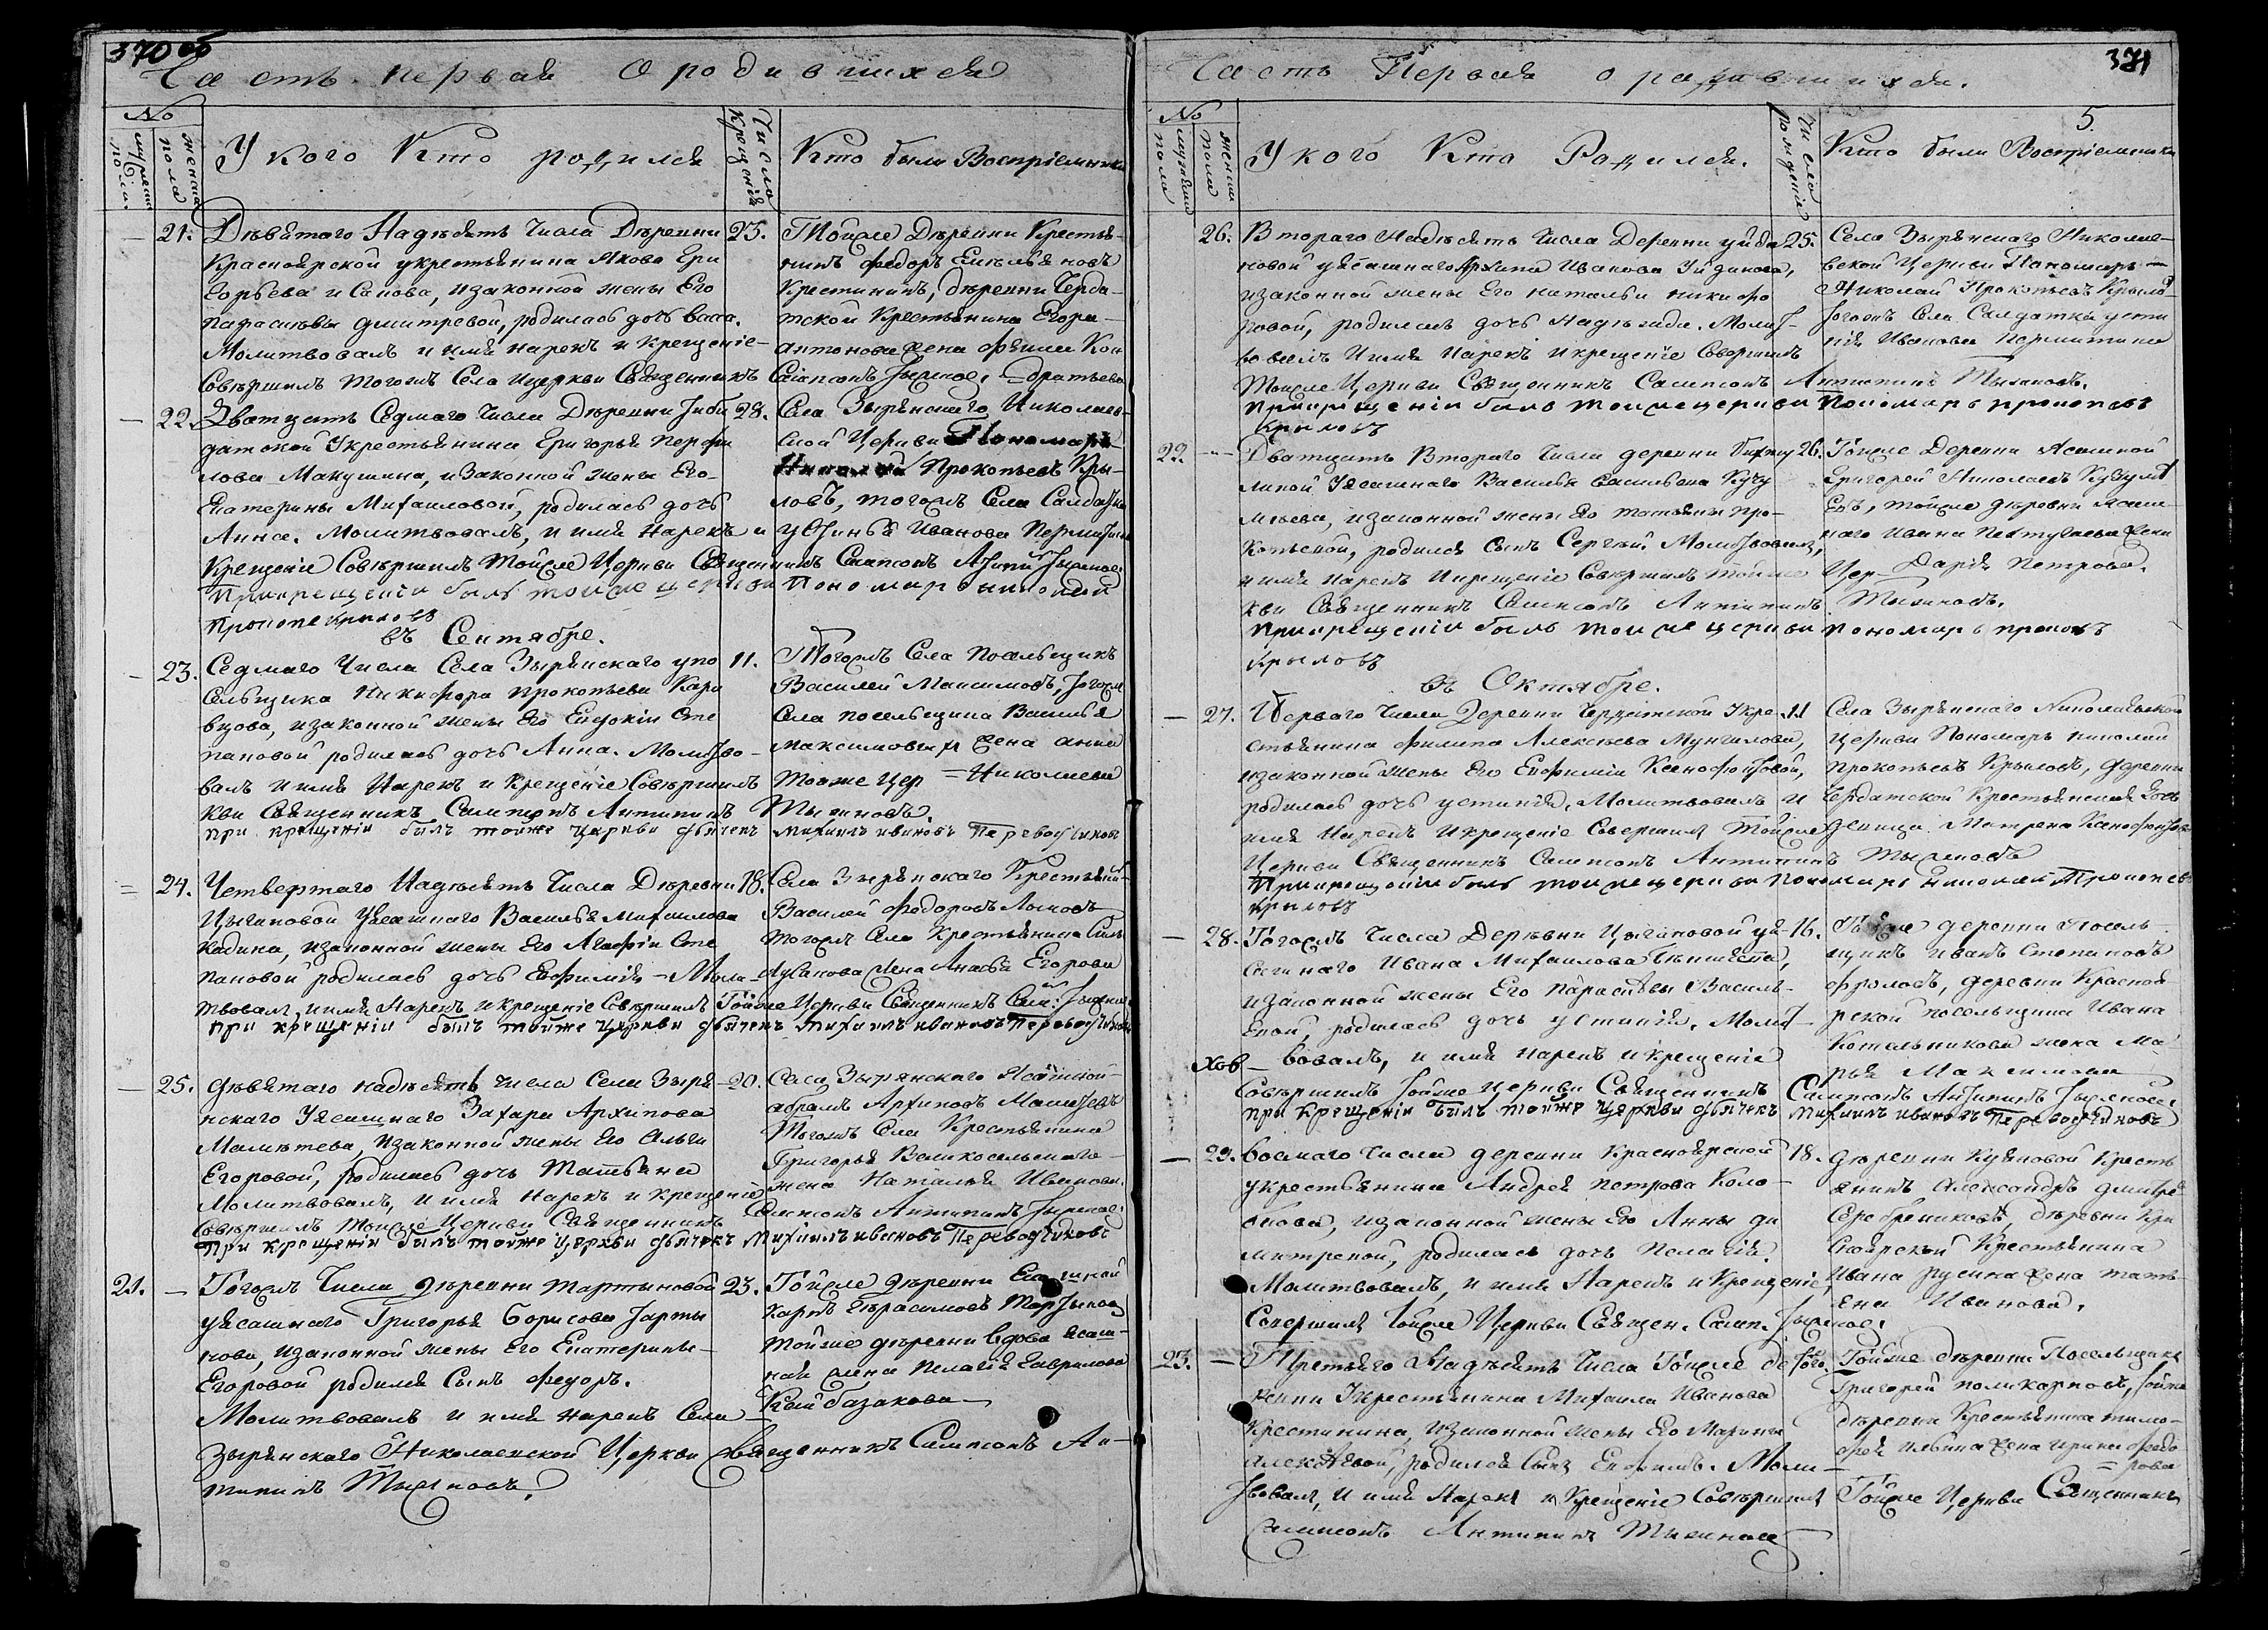 370 об
Часть первая О родившихся
№
мужеска пола.
женска пола
У кого Кто родился
Число Крещенія
Кто были Воспріемники
21. Девятаго Надесять Числа Деревни 23.
Красноярской укрестьянина Якова Гри
горьева и Сапова, изаконной жены Его
парасковьи дмитревой, родилась дочь васса.
Молитвовалъ и имя нарекъ и крещеніе
Совершилъ тогожъ Села ицеркви Священникъ Сампсонъ Тыжнов.
Тойже Деревни Крестья-
нинъ федоръ Емельяновъ
Крестининъ, деревни Черда-
тской Крестьянина Егора
антонова жена
22. Дватцать Седмаго Числа Деревни 28.
датской Укрестьянина Григорья Перфи
лова Макушина, изаконной жены Его
Екатерины Михаиловой, родилась дочь
Анна. Молитвовалъ, и имя Нарекъ и
Крещеніе Совершилъ Тойже Церкви Священникъ Сампсонъ Тыжнов.
При крещеніи былъ тойже церкви Пономарь николай
Прокопе крыловъ
Села Зырянскаго Николаев-
ской Церкви Пономарь
Николай Прокопьевъ Кры-
ловъ, тогожъ Села Салдатка
устинья Иванова
въ Сентябре.
23. Седмаго Числа Села Зырянскаго упо 11.
сельщика Никифора Прокопьева Кара
взова, изаконной жены Его Евдокіи Сте
пановой родилась дочь Анна. Молитво-
валъ и имя Нарекъ и Крещеніе Совершилъ тояже Цер
кви Священникъ Сампсонъ Антипинъ Тыжновъ.
при крещеніи былъ тойже церкви дьячекъ михаилъ ивановъ Переводчиковъ
Тогожъ Села Посельщикъ
Василей Максимовъ, тогоже
Села посельщика Василья
максимовыхъ жена анна
Николаева
24. Четвертаго Надесять Числа Деревни 18.
Цыгановой Уясашнаго Василья михаилова
кадина, изаконной жены Его Агафіи Сте
пановой родилась дочь Евфимія - Моли-
твовалъ, и имя Нарекъ и крещеніе Совершилъ Тойже Церкви Священникъ Сам. Тыжнов
при крещеніи былъ тойже церкви дьячекъ михаилъ ивановъ переводчиковъ
Села Зырянскаго Крестьянин
Василей Федоровъ
тогожъ Села Крестьянина
жена Анна Егорова
25. девятаго надесять числа Села Зыря 20.
нскаго Уясашнаго Захара Архипова
Малютева, изаконной жены Его Ольги
Егоровой, родилась дочь Татьяна
Молитвовалъ, и имя Нарекъ и крещеніе
Совершилъ Тойже Церкви Священникъ Сампсонъ Антипинъ Тыжнов.
При крещеніи былъ тойже церкви дьячекъ Михаилъ ивановъ Переводчиковъ
Села Зырянскаго Ясашной
абрамъ Архиповъ
Тогожъ Села Крестьянина
Григорья Великосельскаго
жена Наталья Иванова.
21. Тогожъ Числа деревни тартыновой 23.
уясашнаго Григорья Борисова тарты
нова, изаконной жены Его Екатерины
Егоровой родился Сынъ федоръ.
Молитвовалъ и имя нарекъ Села
Зырянскаго Николаевской Церкви Священникъ Сампсонъ Ан-
типинъ Тыжновъ.
Тойже деревни Ясашной
карпъ Герасимовъ
тойже деревни вдова ясаш-
ная жена Пелагія Гаврилова
Кайбазакова
371
Часть Первая о родившихся.
5.
№
мужеска пола
женска пола
У кого Кто Родился.
Числа рожденіе
Кто были Воспріемники
26. Втораго Надесять Числа Деревни уйда 25.
новой уясашнаго Архипа Иванова Уйданова,
изаконной жены Его натальи никифо
ровой, родилась дочь Надежда. Молит-
вовалъ И имя Нарекъ и крещеніе Совершилъ
Тойже Церкви Священникъ Сампсонъ Антипинъ Тыжновъ.
прикрещеніи былъ тойже церкви Пономарь прокопевъ
крыловъ
Села Зырянскаго Николае-
вской Церкви Пономарь
Николай Прокопьевъ Крыло
тогожъ Села Салдатка усти
нія Иванова
22. Дватцать Втораго Числа деревни 26.
Уясашнаго Василья васильева Кучу
мѣева, изаконной жены Его татьяны про-
копьевой, родился Сынъ Сергѣй. Молитвовалъ,
и имя нарекъ И крещеніе Совершилъ тойже Цер-
кви Священникъ Сампсонъ Антипинъ Тыжновъ.
прикрещеніи былъ тойже церкви пономарь прокопевъ
крыловъ
Тойже Деревни Ясашной
Григорей Николаевъ
тойже деревни Ясаш-
наго Ивана жена
Дарія Петрова.
въ Октябре.
27. Перваго Числа Деревни Чердатской Укре 11
стьянина филипа Алексеева Мунгалова,
изаконной жены Его Евфиміи Ксенофонтовой,
родилась дочь устинія. Молитвовалъ и
имя Нарекъ И крещеніе Совершилъ Тойже
Церкви Священникъ Сампсонъ Антипинъ Тыжновъ
Прикрещеніи былъ тойже церкви Пономарь николай Прокопевъ
крыловъ
Села Зырянскаго Николаевской
Церкви Пономарь николай
прокопьевъ Крыловъ, деревни
Чердатской Крестьянская дочь
девица Матрена Ксенофонтова
28. Тогожъ Числа Деревни Цыгановой уя 16.
сашнаго Ивана Михаилова
изаконной жены Его парасковьи Василь-
евой, родилась дочь устинія, Молит-
вовалъ, и имя нарекъ и крещеніе
Совершилъ тойже Церкви Священникъ Сампсонъ Антипинъ Тыжнов.
при крещеніи былъ тойже церкви дьячекъ михаилъ ивановъ Переводчиковъ
Тойже деревни Посель
щикъ иванъ Степановъ
фроловъ, деревни Краснои
рской посельщика Ивана
Котельникова жена Ма-
рья Максимова
29. восмаго Числа деревни Красноярской 18.
укрестьянина Андрея петрова Коло
бова, изаконной жены Его Анны ди
митревой, родилась дочь Пелагія.
Молитвовалъ, и имя Нарекъ и Крещеніе,
Совершилъ тойже Церкви Священ. Самп. Тыжнов.
деревни Куяновой Кресть
янинъ Александръ дмитре
Серебрениковъ, деревни Кра
снойрской Крестьянина
Ивана русина жена тать-
яна Иванова.
23. Третьяго Надесять Числа Тойже де
ревни Укрестьянина Михаила Иванова
Крестинина, изаконной жены Его Марины
алексѣевой, родился Сынъ Евфимъ. Моли-
твовалъ, И имя Нарекъ и Крещеніе Совершилъ Тойже Церкви Священникъ
Сампсонъ Антипинъ Тыжновъ
Тойже деревни Посельщикъ
Григорей поликарповъ, тойже
деревни Крестьянина тимо-
фея ильина жена ирина федо
рова